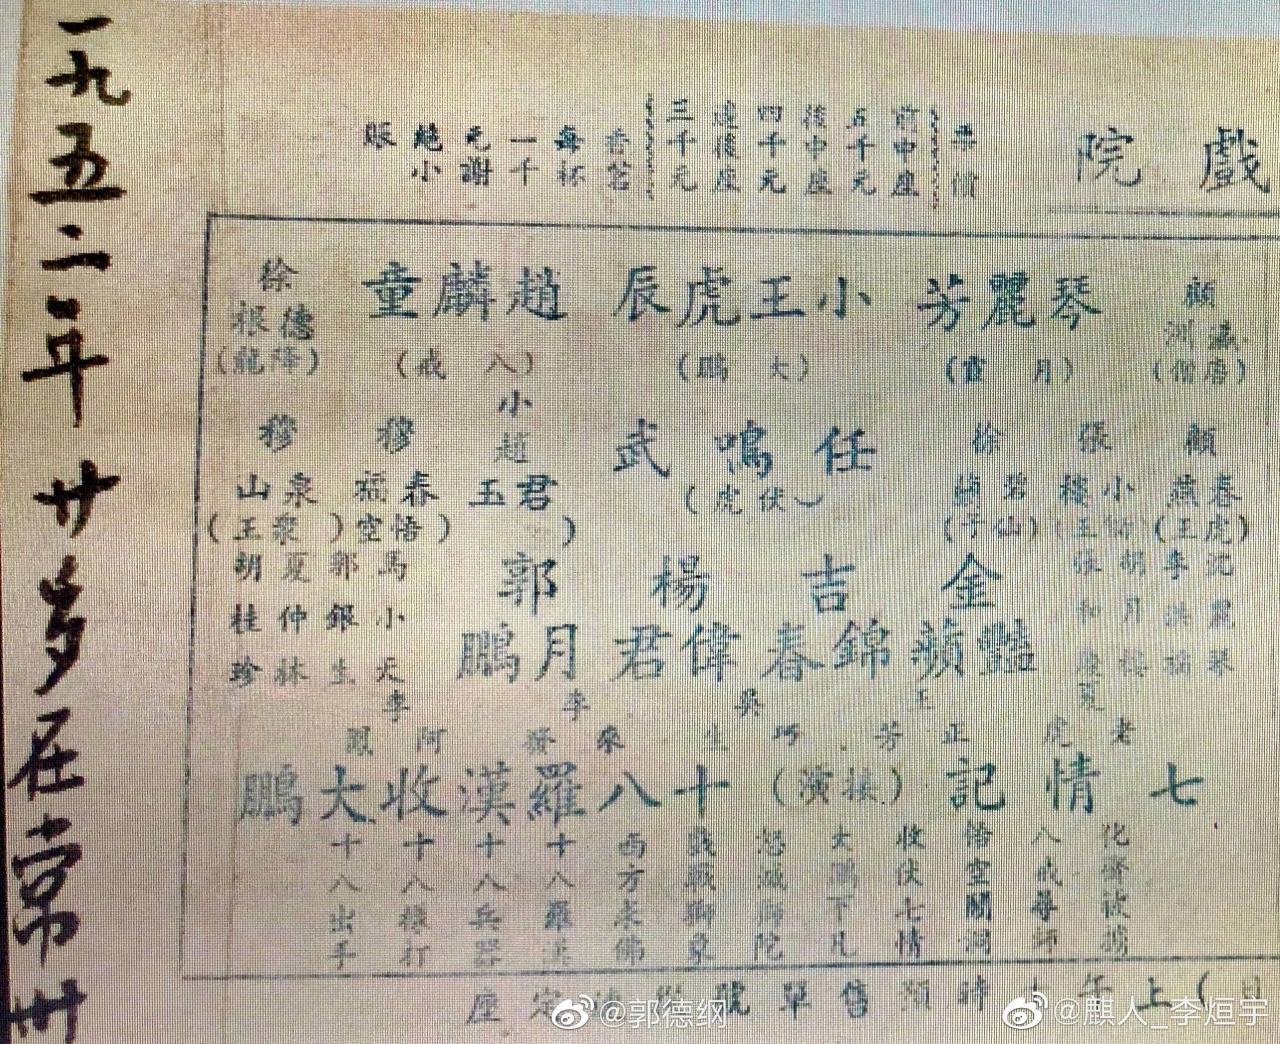 一九五二年廿岁在常州
戲院
票價
前中座
五千元
後中座
四千元
邊後座
三千元
香茗
每杯
一千
元謝
絕小
賬
顧
琴麗芳
(月霞)
小王虎辰
(大鵬)
趙麟童
(八戒)
徐德根
(降龍)
顧春燕
(虎王)
張小樓
徐碧
任鳴武
(伏虎)
小趙君玉
穆春福
(悟空)
穆泉山
(衆王)
沈麗琴
李洪
胡月
張和
金豔蘋
吉錦春
楊偉君
郭月鵬
馬小天
郭銀生
夏仲林
胡桂珍
夏老虎
王正芳
吳巧生
李來發
李阿鳳
七情記
(接演)
十八羅漢收大鵬
化齋被擄
八戒尋師
悟空鬧洞
收伏七情
大鵬下凡
怒滅獅陀
戲戰獅象
西方求佛
十八羅漢
十八兵器
十八樣打
十八出手
(日)上午十時預售單號
定座
@郭德纲
@麒人_李烜宇